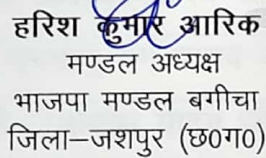 हरिश कुमार आरिक
मण्डल अध्यक्ष
भाजपा मण्डल बगीचा
जिला–जशपुर (छ0ग0)